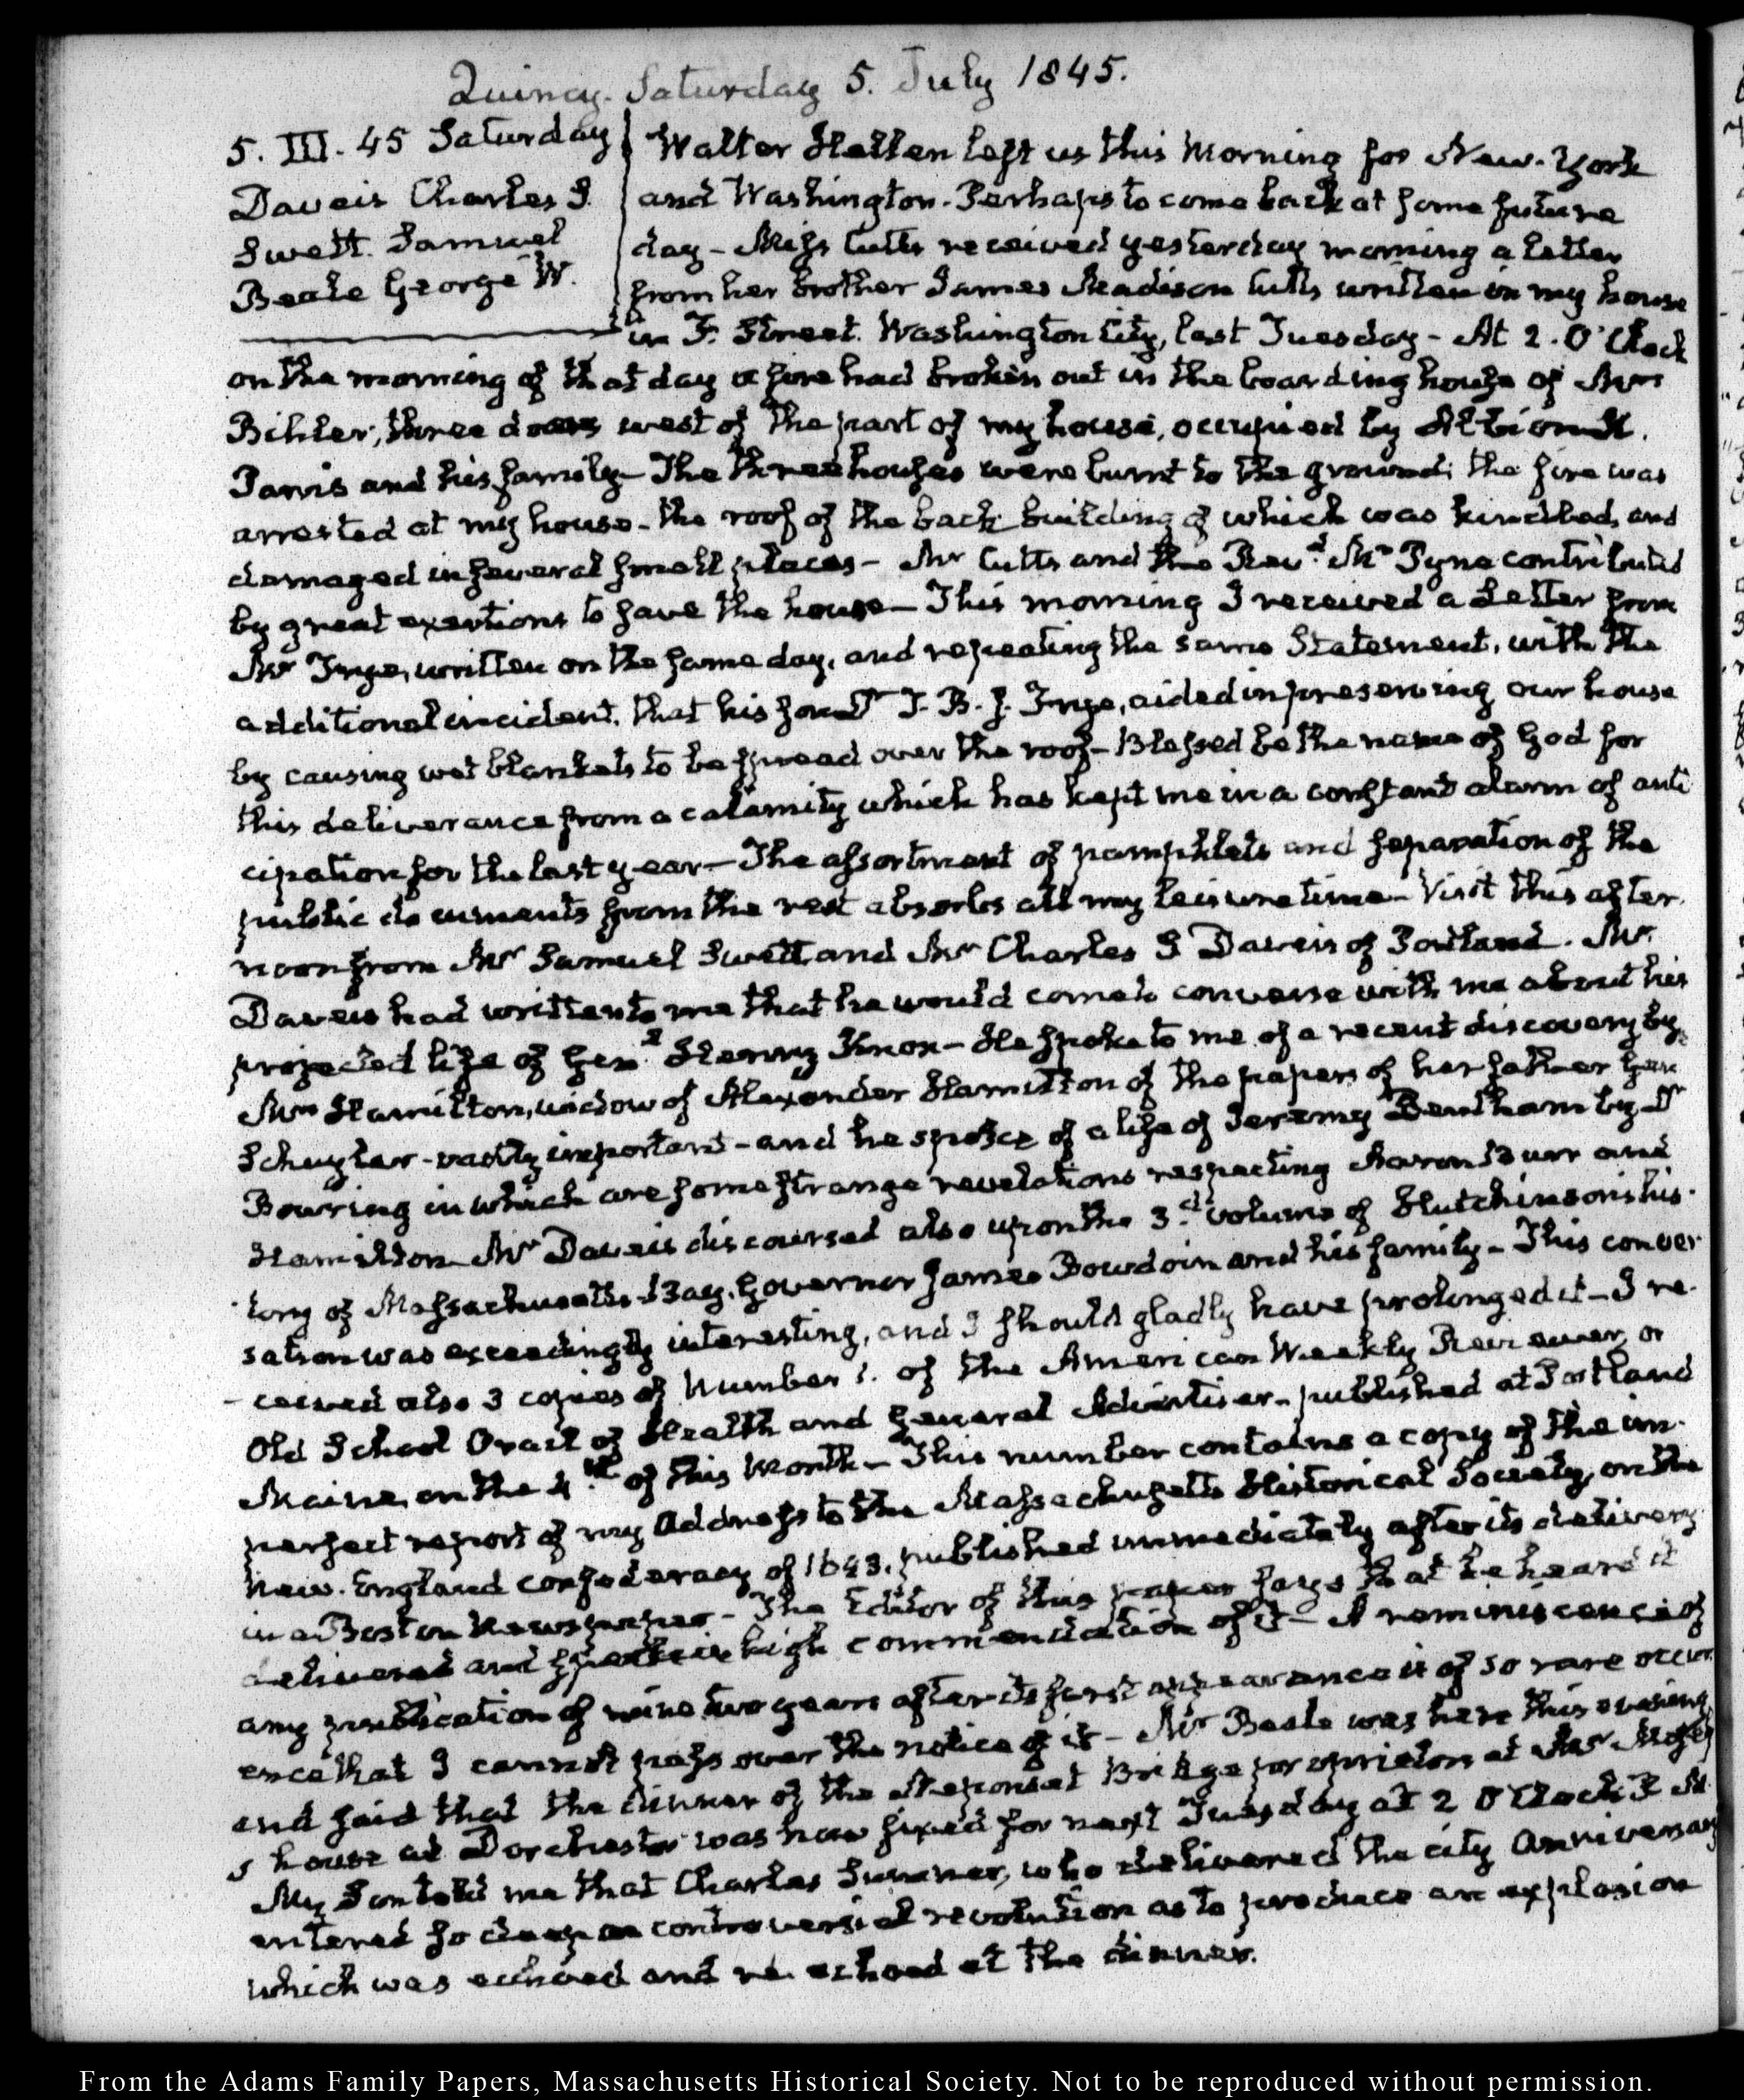 Quincy. Saturday 5. July 1845.
5. III. 45 Saturday
Daveis Charles S.
Swett. Samuel
Beale George W.
Walter Hellen left us this Morning for New-York
and Washington. Perhaps to come back at some future
day – Miss Cutts received yesterday morning a letter
from her brother James Madison Cutts written in my house
in F. Street. Washington City, last Tuesday – At 2. O'Clock
on the morning of that day a fire had broken out in the boarding house of Mrs
three doors west of the part of my house, occupied by
and his family – The three houses were burnt to the ground; the fire was
arrested at my house – the roof of the back building of which was kindled, and
damaged in several small places – Mr Cutts and the Revd. Mr contributed
by great exertions to save the house – This morning I received a Letter from
Mr written on the same day, and repeating the same Statement, with the
additional incident, that his son Dr aided in preserving our house
by causing wet blankets to be spread over the roof – Blessed be the name of God for
this deliverance from a calamity which has kept me in a constant alarm of anti
cipation for the last year – The assortment of pamphlets and separation of the
public documents from the rest absorbs all my leisure time – Visit this after
noon from Mr Samuel Swett and Mr Charles S Daveis of Portland. Mr.
Daveis had written to me that he would come to converse with me about his
projected life of Genl. Henry Knox – He spoke to me of a recent discovery by
Mrs Hamilton, widow of Alexander Hamilton of the papers of her father Genl
Schuyler – vastly important – and he spoke of a life of Jeremy Bentham by Dr
Bowring in which are some strange revelations respecting Aaron Burr and
Hamilton – Mr Daveis discoursed also upon the 3.d volume of Hutchinson's his-
tory of Massachusetts-Bay. Governor James Bowdoin and his family – This conver
sation was exceedingly interesting, and I should gladly have prolonged it – I re-
-ceived also 3 copies of Number 1. of the American Weekly or
Old School of Health and General Advertiser – published at Portland
Maine, on the 4th. of this Month – This number contains a copy of the im-
perfect report of my Address to the Massachusetts Historical Society, on the
New-England confederacy of 1643, published immediately after its delivery
in a Boston Newspaper – The Editor of this paper says that he heard it
delivered and speaks in high commendation of it – A reminiscence of
any publication of mine two years after its first appearance is of so rare occur
ence that I cannot pass over the notice of it – Mr Beale was here this evening
and said that the dinner of the Neponset Bridge proprietors at Mr
s house at Dorchester was now fixed for next Tuesday at 2 O'Clock P. M.
My Son told me that Charles Sumner, who delivered the city Anniversary
entered so deep on controversial revolution as to produce an explosion
which was echoed and re-echoed at the dinner.
From the Adams Family Papers, Massachusetts Historical Society. Not to be reproduced without permission.